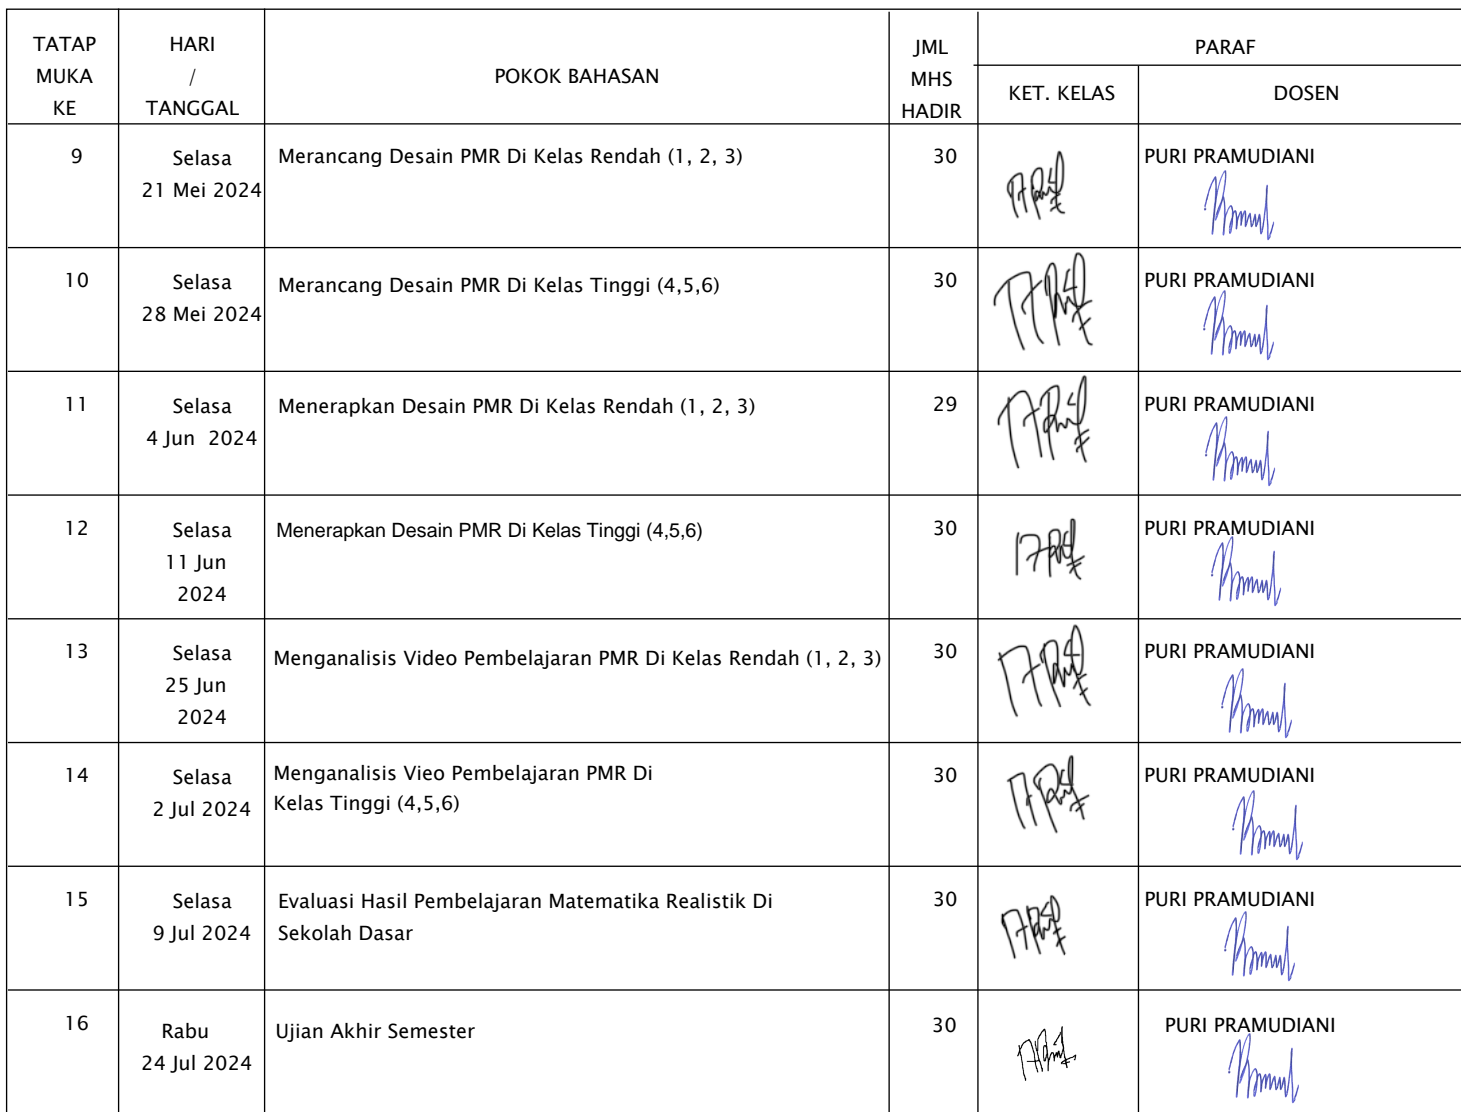 TATAP
MUKA
KE
HARI
/
TANGGAL
POKOK BAHASAN
JML
MHS
HADIR
PARAF
KET. KELAS
DOSEN
9
Selasa
21 Mei 2024
Merancang Desain PMR Di Kelas Rendah (1, 2, 3)
30
PURI PRAMUDIANI
10
Selasa
28 Mei 2024
Merancang Desain PMR Di Kelas Tinggi (4,5,6)
30
PURI PRAMUDIANI
11
Selasa
4 Jun 2024
Menerapkan Desain PMR Di Kelas Rendah (1, 2, 3)
29
PURI PRAMUDIANI
12
Selasa
11 Jun
2024
Menerapkan Desain PMR Di Kelas Tinggi (4,5,6)
30
PURI PRAMUDIANI
13
Selasa
25 Jun
2024
Menganalisis Video Pembelajaran PMR Di Kelas Rendah (1, 2, 3)
30
PURI PRAMUDIANI
14
Selasa
2 Jul 2024
Menganalisis Vieo Pembelajaran PMR Di
Kelas Tinggi (4,5,6)
30
PURI PRAMUDIANI
15
Selasa
9 Jul 2024
Evaluasi Hasil Pembelajaran Matematika Realistik Di
Sekolah Dasar
30
PURI PRAMUDIANI
16
Rabu
24 Jul 2024
Ujian Akhir Semester
30
PURI PRAMUDIANI